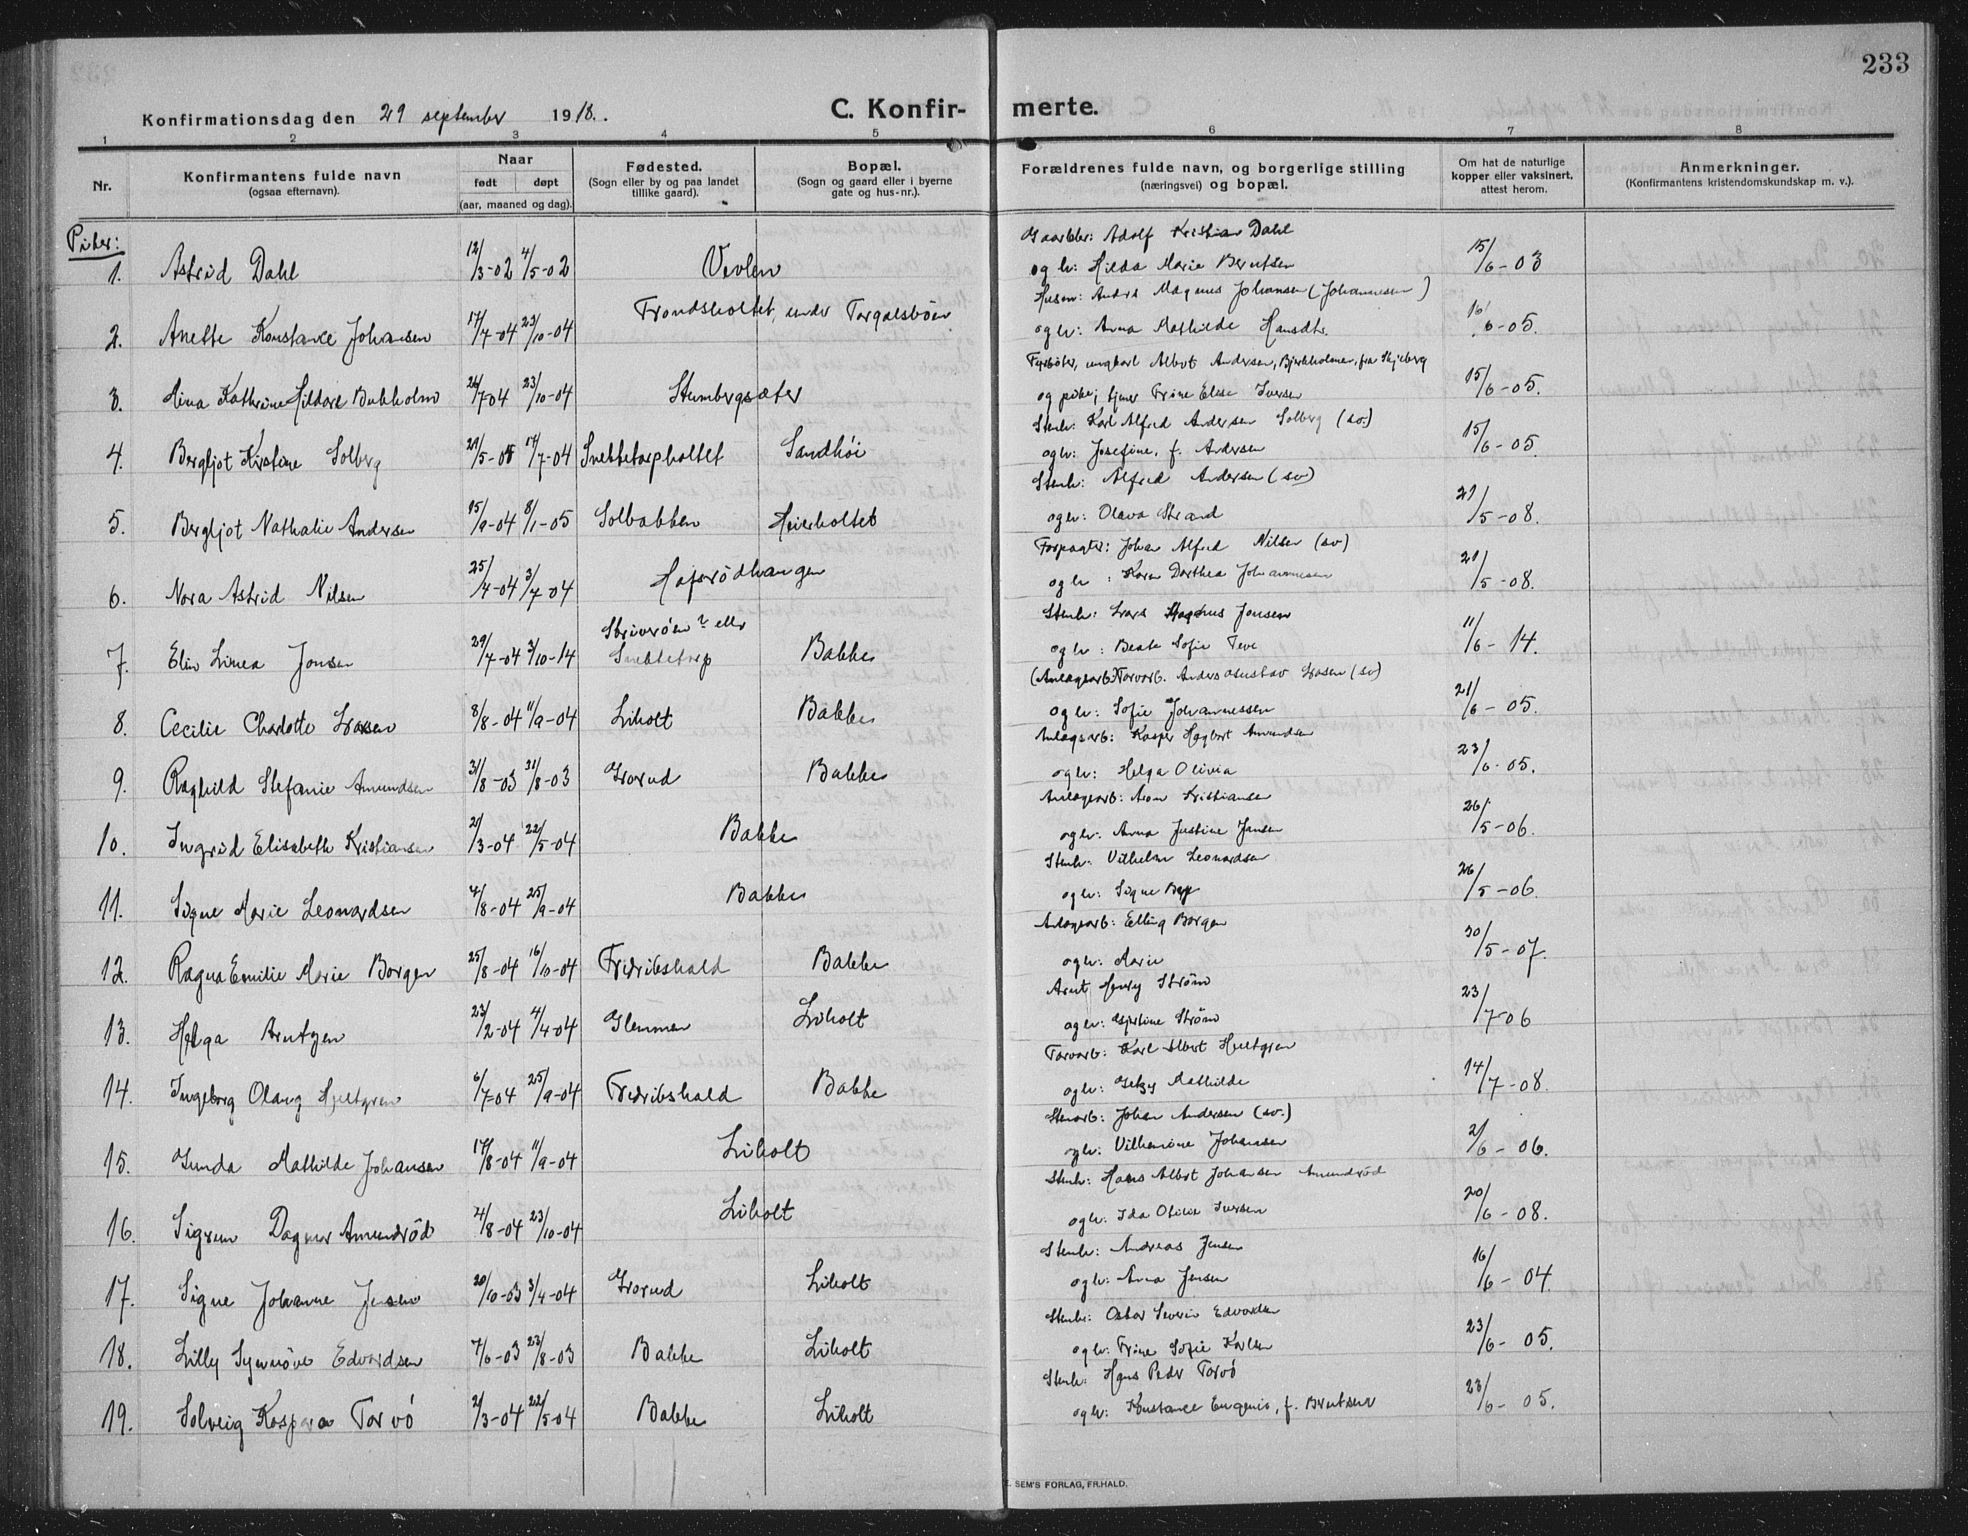 233
Konfirmationsdag den 29 september 1918.
C. Konfirmerte.
1 2 3 4 5 6 7 8
Nr.
Konfirmantens fulde navn
(ogsaa efternavn).
Naar
født døpt
(aar, maaned og dag).
Fødested.
(Sogn eller by og paa landet
tillike gaard).
Bopæl.
(Sogn og gaard eller i byerne
gate og hus-nr.).
Forældrenes fulde navn, og borgerlige stilling
(næringsvei) og bopæl.
Om hat de naturlige
kopper eller vaksinert,
attest herom.
Anmerkninger.
(Konfirmantens kristendomskundskap m. v.).
Piker:
Gaardbr: Adolf Kristian Dahl
1. Astrid Dahl 12/3-02 4/5-02 Vevlen og h: Hilda Marie Berntsen 15/6-03
Husm: Anders Magnus Johansen (Johannesen)
2. Anette Konstance Johansen 17/7-04 23/10-04 Trondsholtet, under Torgalsbøen og h: Anna Mathilde Hansdtr. 16/6-05.
ungkarl Albert Andersen, Bjerkholmen, fra Skjeberg
3. Kathrine Hildare 26/7-04 23/10-04 Stumbergsæter og pike, tjener Trine Elise Iversen 15/6-05.
Stenh: Karl Alfred Andersen Solberg (sv.)
4. Bergljot Kristine Solberg 29/5-05 17/7-04 Snekketorpholtet Sandhøi og h: Josefine, f. Andersen 15/6-05.
Stenh: Alfred Andersen (sv)
5. Bergljot Nathalie Andersen 15/9-04 8/1-05 Solbakken Heierholtet og h: Olava Strand 29/5-08.
Forpagter: Johan Alfred Nilsen (sv)
6. Nora Astrid Nilsen 25/4-04 3/7-04 Hafsrødhaugen og h: Karen Dorthea Johannesen 29/5-08.
Stenh: Lars Magnus Jonsen
7. Elin Linea Jonsen 29/7-04 3/10-14 Skriverøen? eller Snekketorp Bakke og h: Beate Sofie Teve 11/6-14.
(Anlægsarb.) Torvarb. Anders Gustav Larsen (sv)
8. Cecilie Charlotte Larsen 8/8-04 11/9-04 Liholt Bakke og h: Sofie Johannessen 21/6-05.
Anlægsarb: Kasper Hagbart Amundsen
9. Raghild Stefanie Amundsen 31/8-03 31/8-03 Grorud Bakke og h: Helga Olivia 23/6-05.
Anlægsarb: Aron Kristiansen
10. Ingrid Elisabeth Kristiansen 21/3-04 22/5-04 Bakke og h: Anna Justine Jansen 26/5-06.
Stenh: Vilhelm Leonardsen
11. Signe Marie Leonardsen 4/8-04 25/9-04 Bakke og h: Signe 26/5-06.
Anlægsarb: Elling Borgen
12. Ragna Emilie Marie Borgen 25/8-04 16/10-04 Fredrikshald Bakke og h: Marie 30/5-07.
Arnt Henry Strøm
13. Helga Arntzen 23/2-04 4/4-04 Glemmen Liholt og h: Gjertine Strøm 23/7-06
Torvarb: Karl Albert Hjeltgren
14. Ingeborg Olaug Hjeltgren 6/7-04 25/9-04 Fredrikshald Bakke og h: Mathilde 14/7-08.
Stenarb: Johan Andersen (sv.)
15. Gunda Mathilde Johansen 17/8-04 11/9-04 Liholt og h: Vilhemine Johansen 2/6-06.
Stenh: Hans Albert Johansen Amundrød
16. Sigrun Dagmar Amundrød 4/8-04 23/10-04 Liholt og h: Ida Otilie Iversen 20/6-08.
Stenh: Andreas Jensen
17. Signe Johanne Jensen 20/10-03 3/4-04 Grorud Liholt og h: Anna Jensen 16/6-04.
Stenh: Oskar Severin Edvardsen
18. Lilly Synnøve Edvardsen 7/6-03 23/8-03 Bakke Liholt og h: Trine Sofie Karlsen 23/6-05.
Stenh: Hans Peder Torvø
19. Solveig Kaspara Torvø 2/3-04 22/5-04 Bakke Liholt og h: Konstance Eugenie, f. Berntsen 23/6-05.
SEM'S FORLAG, FR.HALD.